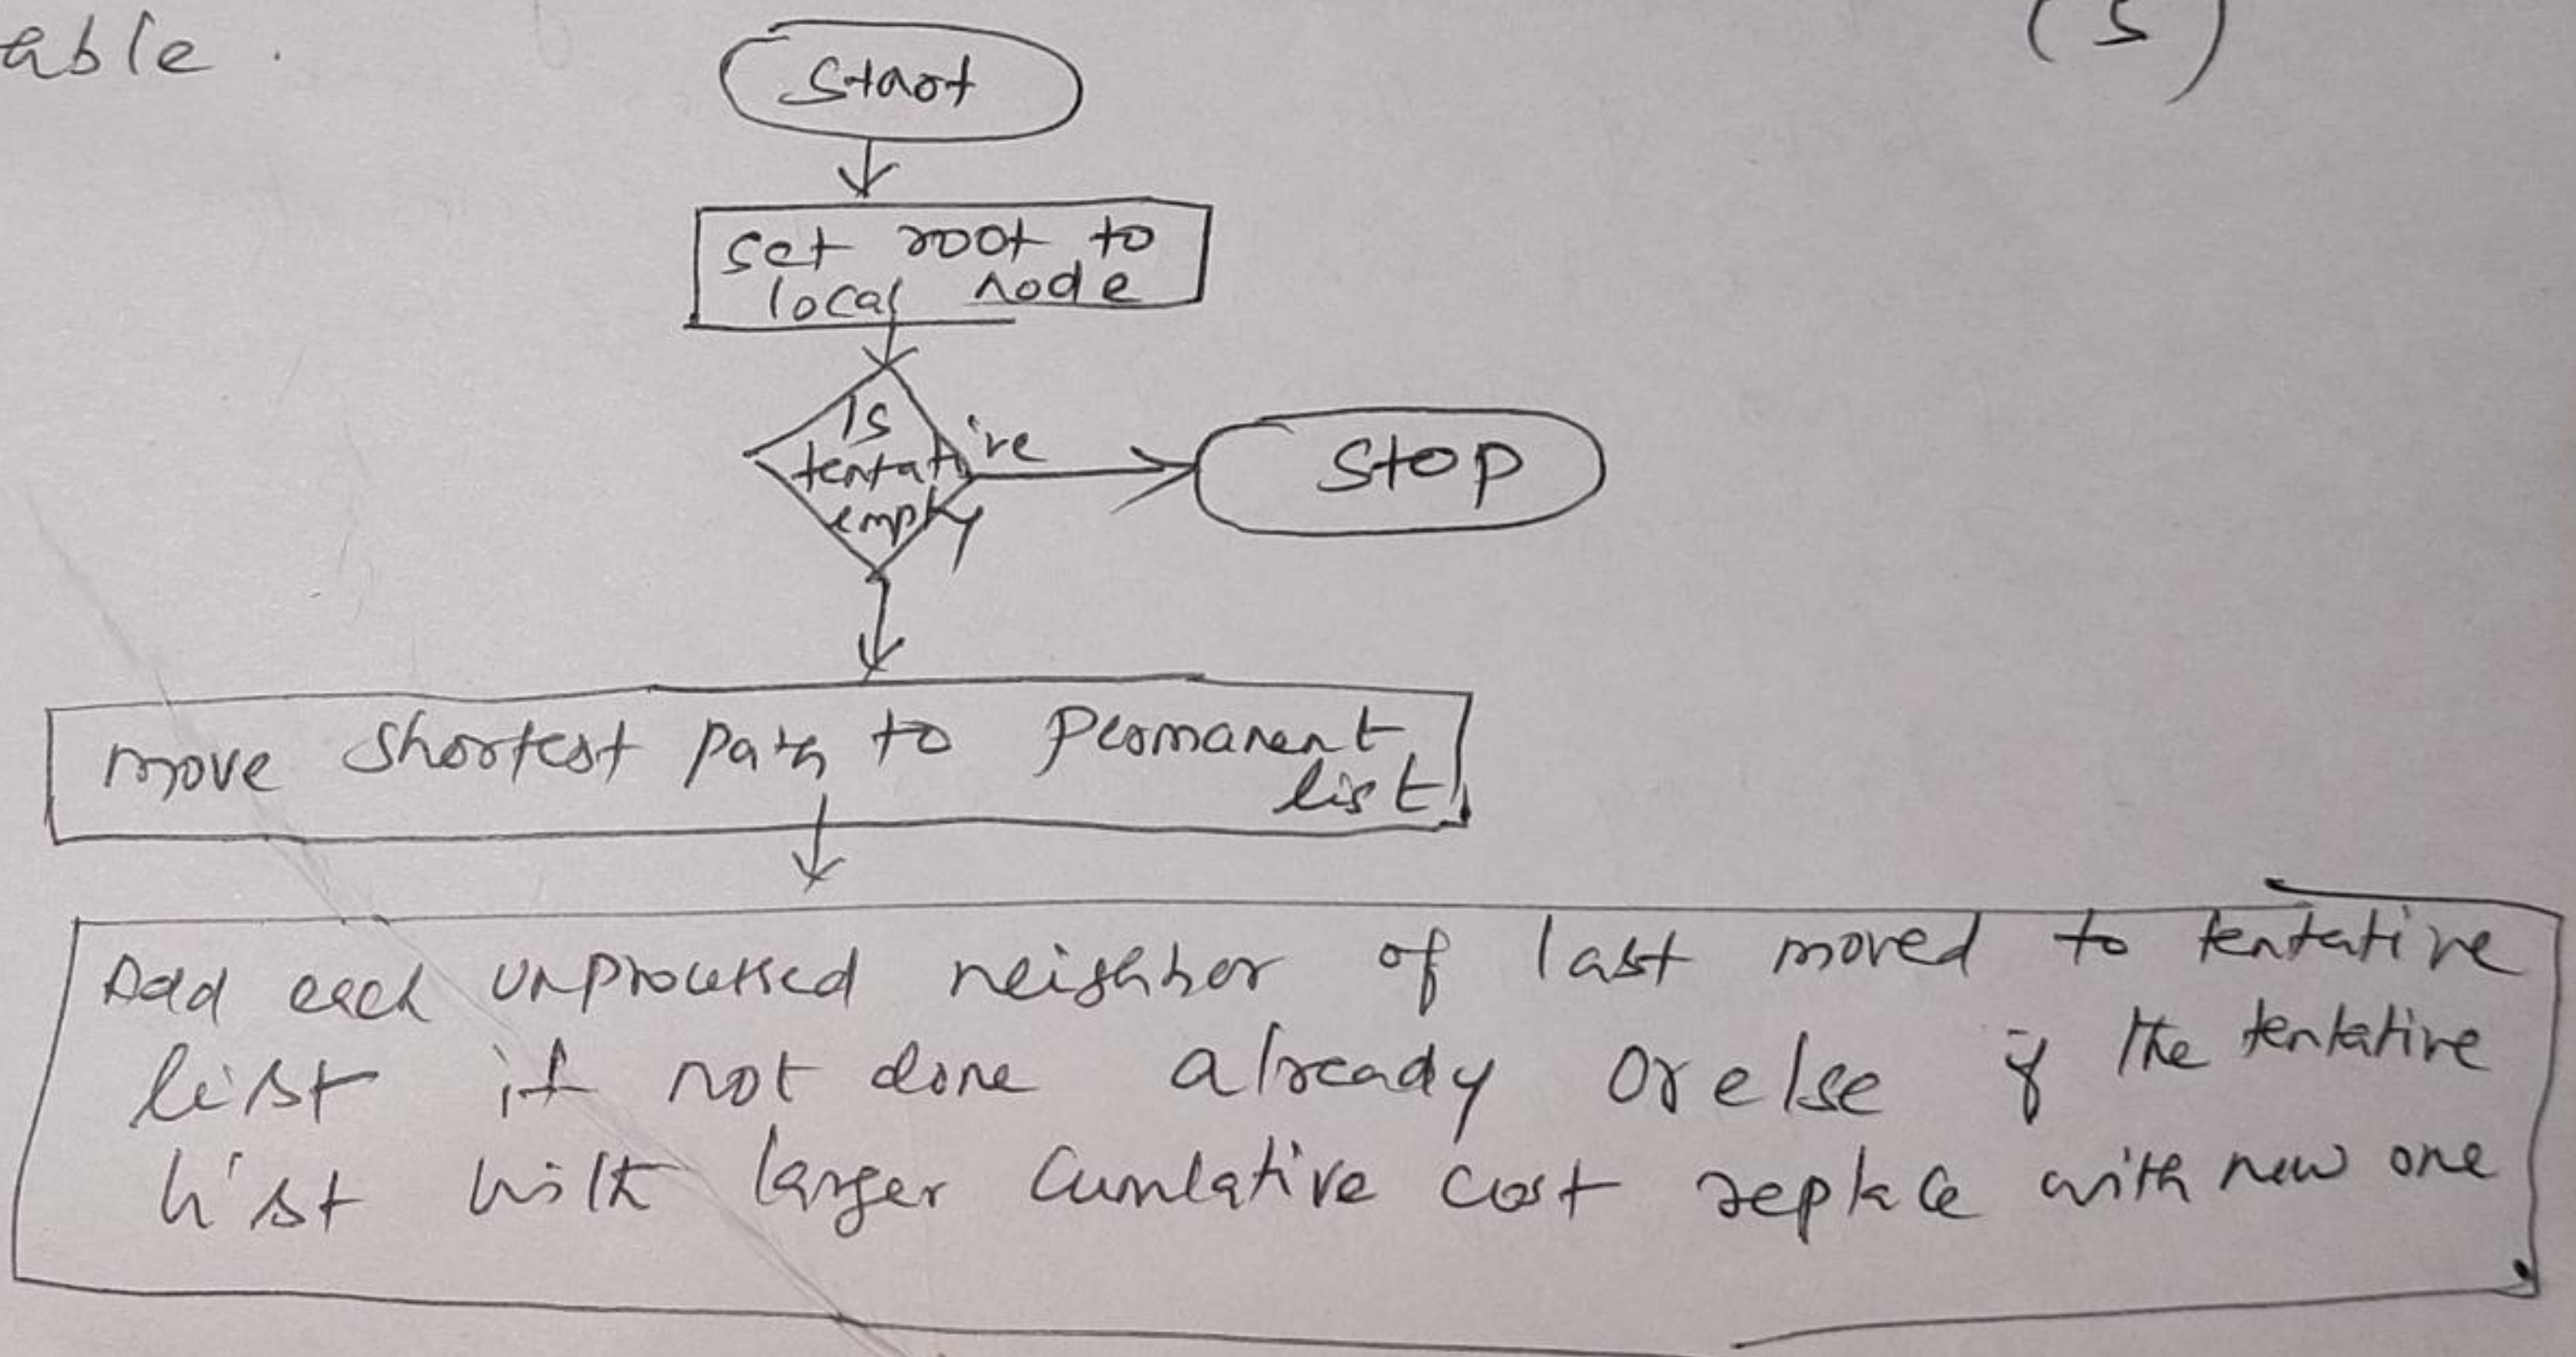 able.
(5)
Start
set root to
local node
Is
tentative
empty
Stop
move shortest path to permanent
list
Add each unprocessed neighbor of last moved to tentative
list if not done already or else if the tentative
list with larger Cumlative cost replace with new one